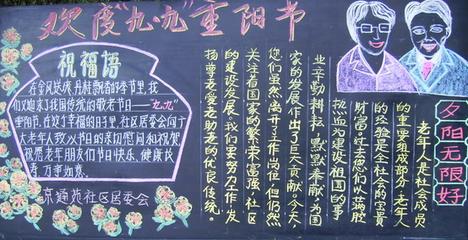 欢度"九·九"重阳节
祝福语
在金风送爽,丹桂飘香的季节里,我
们又迎来了我国传统的敬老节日——"九九"
重阳节。在这个幸福的日子里,社区居委会向广
大老年人致以节日的亲切慰问和祝贺
祝愿老年朋友们节日快乐、健康长
寿、万事如意。
京通苑社区居委会
夕阳无限好
老年人是社会成员
的重要组成部分,老年人
的经验是全社会的宝贵
财富,过去您们以满腔
热血为建设祖国的事
业辛勤耕耘,默默奉献,为国
家的发展作出了巨大贡献,今天
您们虽然离开了工作岗位,但仍然
关注着国家的繁荣富强,社区
的建设发展。我们要努力工作,发
扬尊老爱老助老的优良传统。